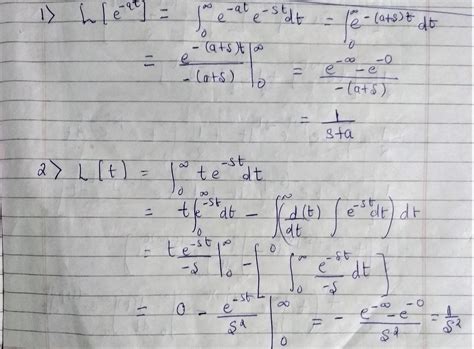 1> L[e^-at] = ∫₀^∞ e^-at e^-st dt = ∫₀^∞ e^-(a+s)t dt
= e^-(a+s)t / -(a+s) |₀^∞ = e^-∞ - e^-0 / -(a+s)
= 1 / s+a
2> L[t] = ∫₀^∞ t e^-st dt
= t∫₀^∞ e^-st dt - ∫₀^∞ (d/dt (t) ∫ e^-st dt) dt
= t e^-st / -s |₀^∞ - [ ∫₀^∞ e^-st / -s dt ]
= 0 - e^-st / s² |₀^∞ = - e^-∞ - e^-0 / s² = 1/s²